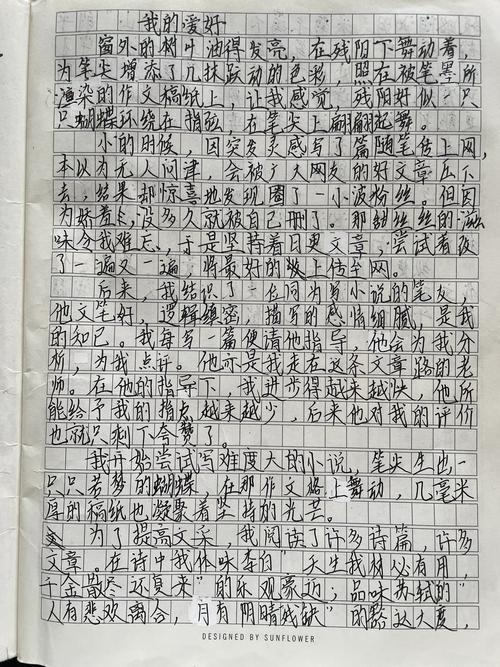 我的爱好
窗外的树叶油得发亮，在残阳下舞动着，
为笔尖增添了几抹跃动的色彩，照在被笔墨所
渲染的作文稿纸上，让我感觉，残阳好似一只
只蝴蝶环绕在指弦，在笔尖上翩翩起舞。
小的时候，因突发灵感写了篇随笔传上网，
本以为无人问津，会被广大网友的好文章压下
去，结果却惊喜地发现圈了一小波粉丝。但因
为娇羞，没多久就被自己删了。那甜丝丝的滋
味令我难忘，于是坚持着日更文章，尝试着改
了一遍又一遍，将最好的上传至网。
后来，我结识了一位同为写小说的笔友，
他文笔好，逻辑缜密，描写的感情细腻，是我
的知己。我每写一篇便请他指导，他会为我分
析，为我点评。他亦是我走在这条文章路的老
师。在他的指导下，我进步得越来越快，他所
能给予我的指点越来越少，后来他对我的评价
也就只剩下夸赞了。
我开始尝试写难度大的小说，笔尖生出一
只只若梦的蝴蝶，在那作文格上舞动，几毫米
厚的稿纸也凝聚着坚持的光芒。
为了提高文采，我阅读了许多诗篇，许多
文章。在诗中我体味李白"天生我材必有用，
千金散尽还复来"的乐观豪迈；品味苏轼的"
人有悲欢离合，月有阴晴残缺"的豁达大度，
DESIGNED BY SUNFLOWER